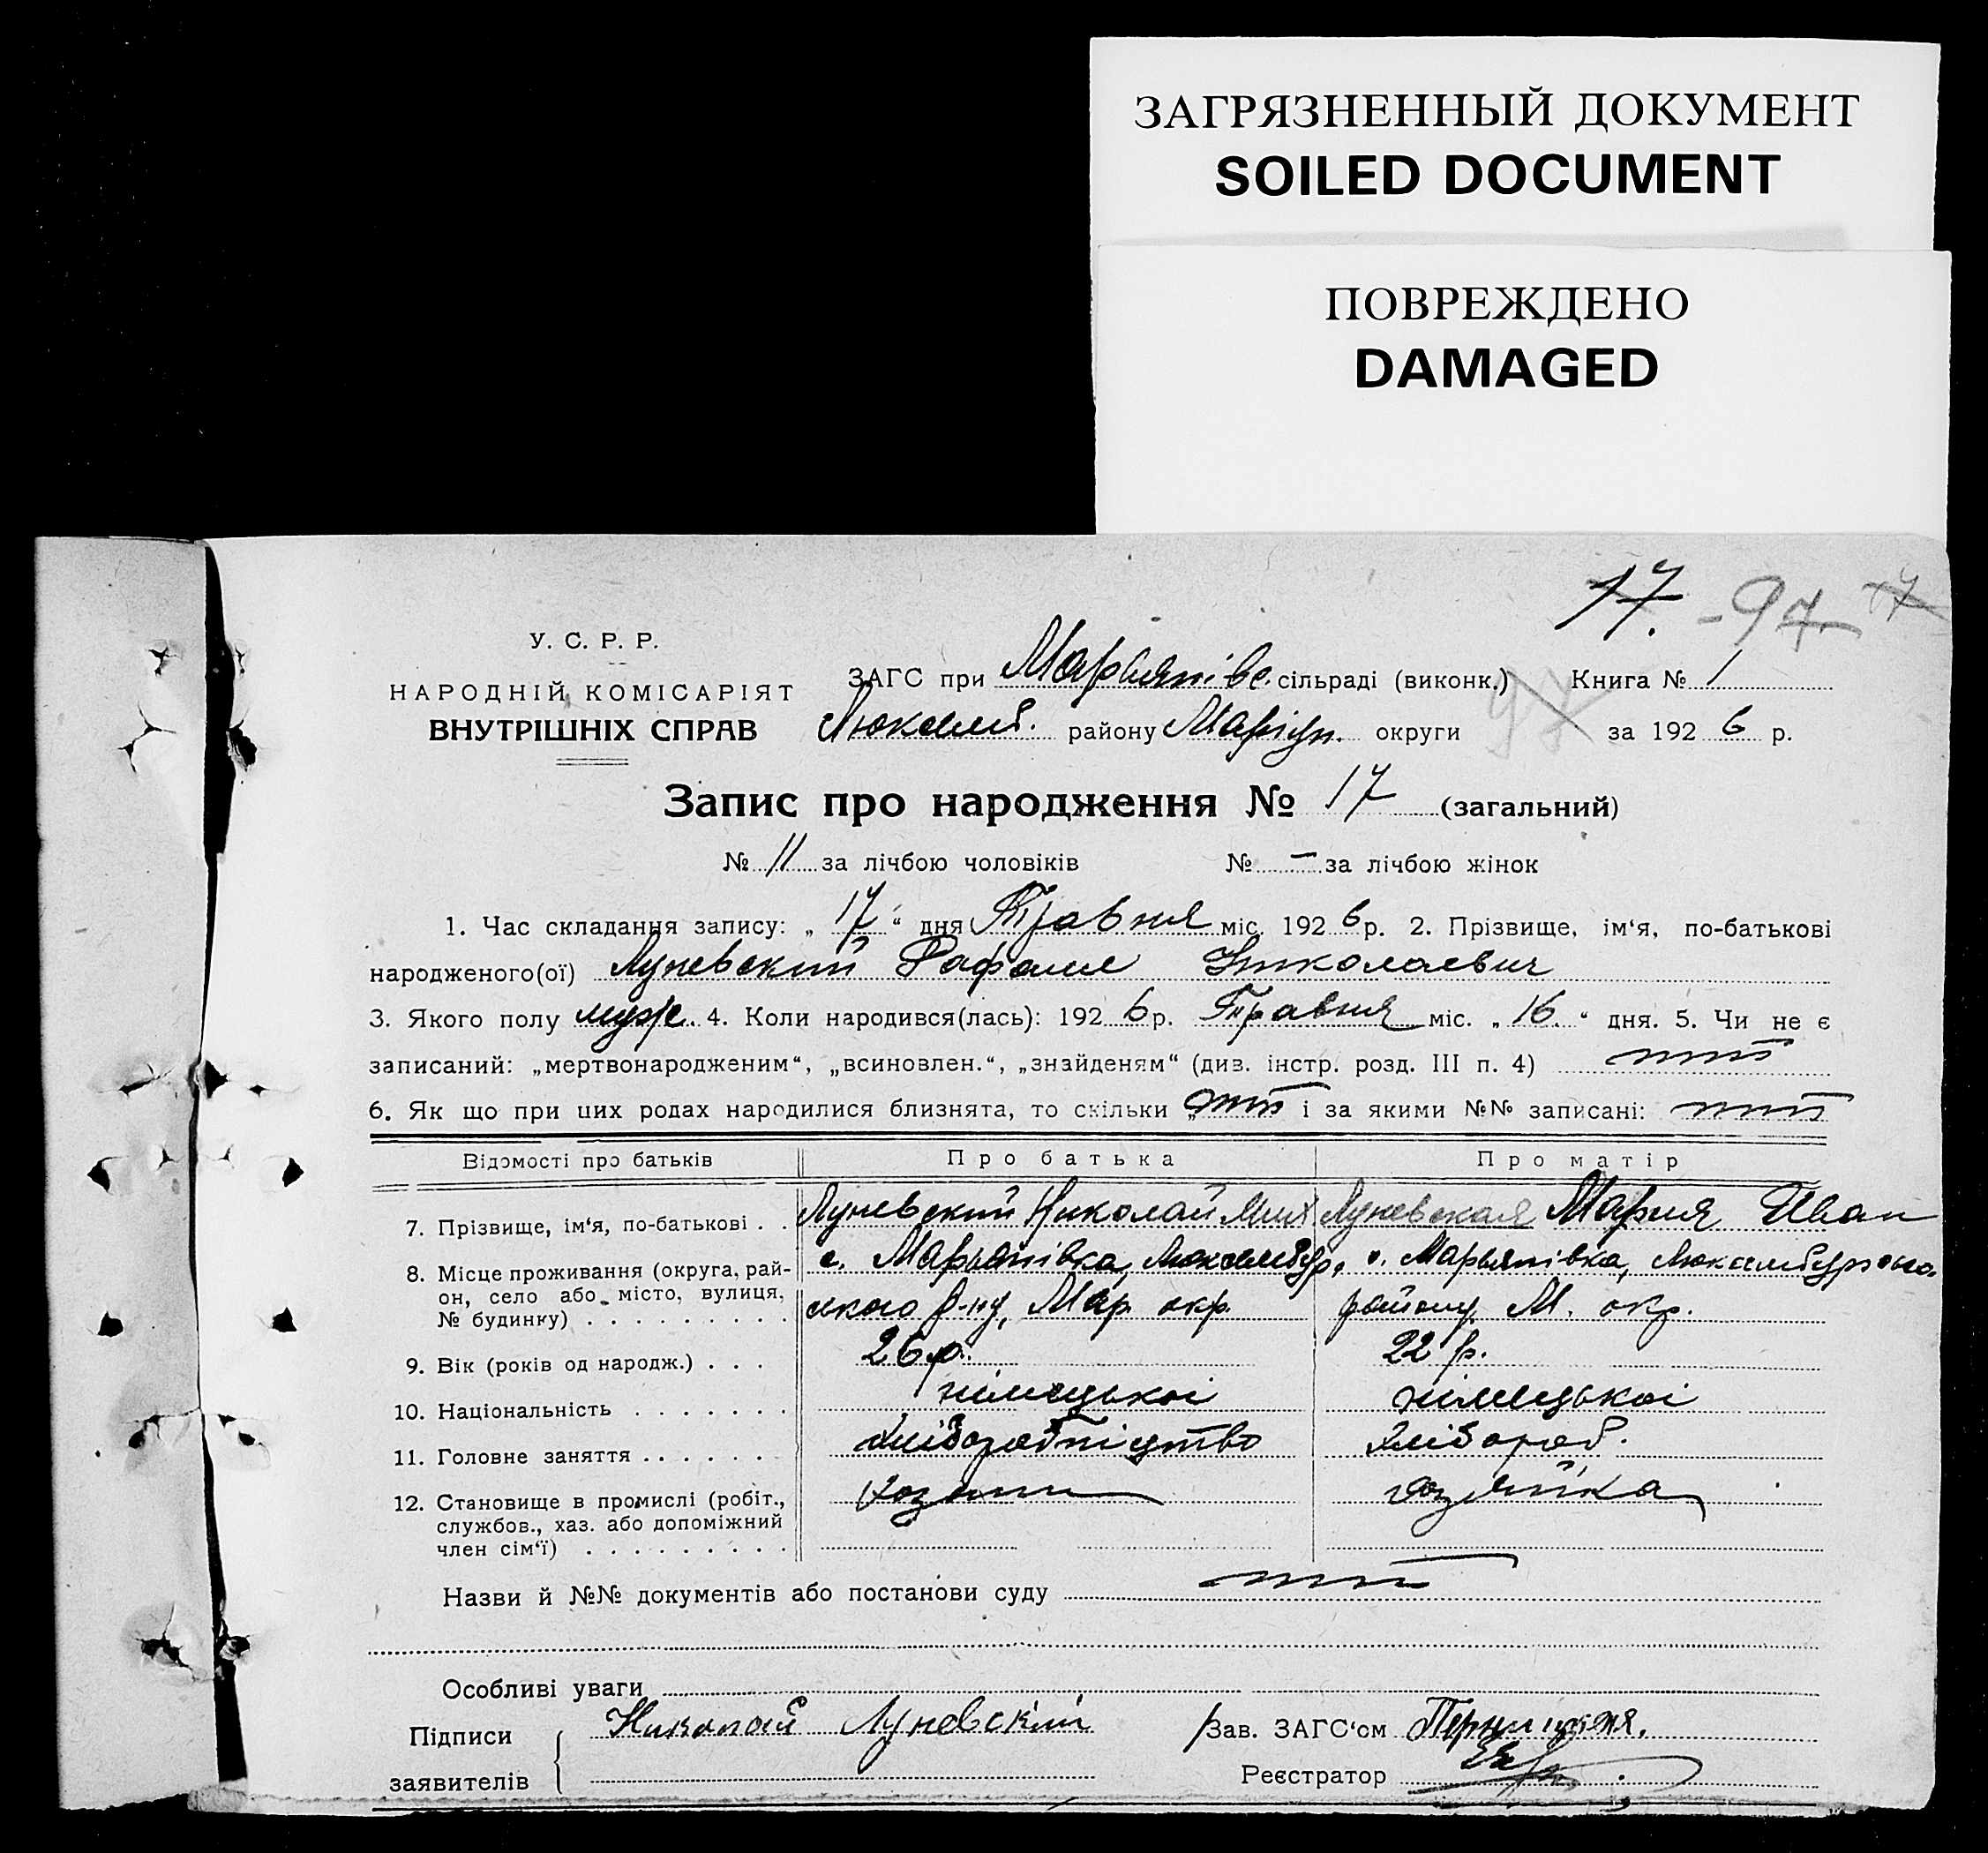 ЗАГРЯЗНЕННЫЙ ДОКУМЕНТ
SOILED DOCUMENT
ПОВРЕЖДЕНО
DAMAGED
17. - 97 17
У. С. Р. Р.
НАРОДНІЙ КОМІСАРІЯТ
ВНУТРІШНІХ СПРАВ
ЗАГС при Марьянівс. сільраді (виконк.) Книга № 1
Люксемб. району Маріуп. округи 97 за 1926 р.
Запис про народження № 17 (загальний)
№ 11 за лічбою чоловіків № – за лічбою жінок
1. Час складання запису: „ 17 “ дня Травня міс. 1926 р. 2. Прізвище, ім‘я, по-батькові
народженого(ої) Луневский Рафаил Николаевич
3. Якого полу муж. 4. Коли народився(лась): 1926 р. Травня міс. „ 16. “ дня. 5. Чи не є
записаний: „мертвонародженим“, „всиновлен.“, „знайденям“ (див. інстр. розд. III п. 4)
6. Як що при цих родах народилися близнята, то скільки „ і за якими №№ записані:
Відомості про батьків Про батька Про матір
7. Прізвище, ім‘я, по-батькові . . Луневский Николай Мих Луневская Мария Иван
8. Місце проживання (округа, рай-
он, село або місто, вулиця,
№ будинку) . . . . . . . . .
с. Марьянівка, Люксембур. с. Марьянівка, Люксембурзько.
ського р-ну, Мар. окр. району М. окр.
9. Вік (років од народж.) . . . 26 р. 22 р.
10. Національність . . . . . . . німецькоі німецькоі
11. Головне заняття . . . . . . хліборобніцтво хлібороб.
12. Становище в промислі (робіт.,
службов., хаз. або допоміжний
член сім‘ї) . . . . . . . . .
хозяин хозяйка
Назви й №№ документів або постанови суду
Особливі уваги
Підписи
заявителів
Николай Луневский
Зав. ЗАГС‘ом
Реєстратор